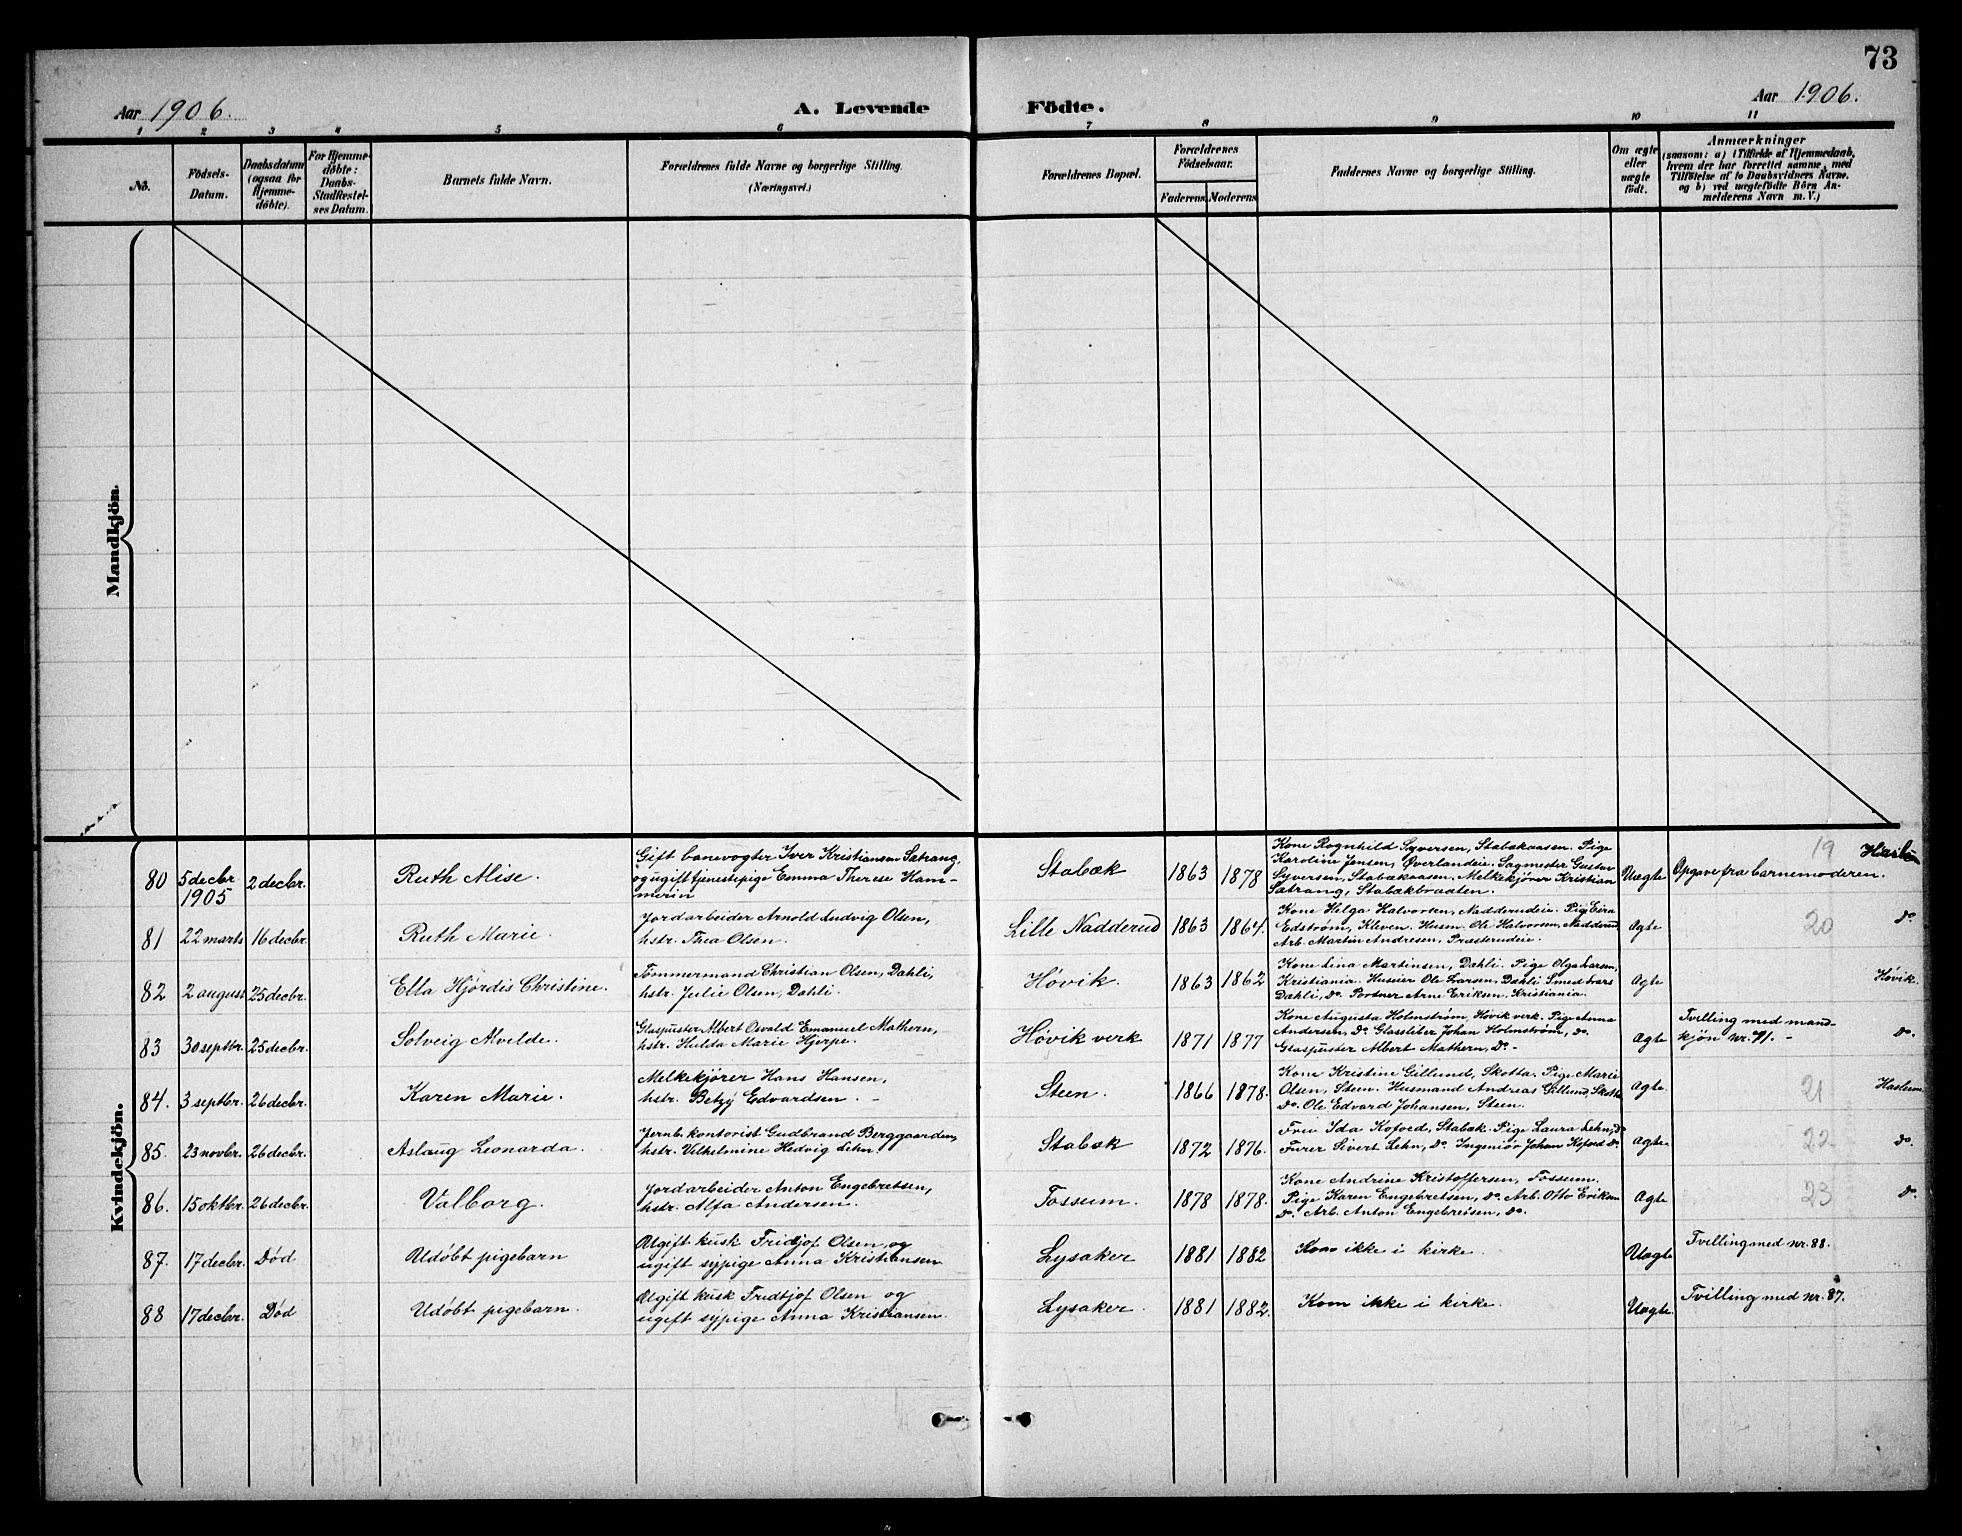 73
Aar 1906.
A. Levende Födte.
Aar 1906.
1 2 3 4 5 6 7 8 9 10 11
No.
Födsels-Datum.
Daabsdatum (ogsaa for Hjemme-döbte).
For Hjemme-döbte: Daabs-Stadfæstel-ses Datum.
Barnets fulde Navn.
Forældrenes fulde Navne og borgerlige Stilling.
(Næringsvei.)
Forældrenes Bopæl.
Forældrenes Födselsaar.
Faderens Moderens
Faddernes Navne og borgerlige Stilling.
Om ægte eller uægte födt.
Anmærkninger
(saasom: a) i Tilfælde af Hjemmedaab,
hvem der har forrettet samme, med
Tilföielse af to Daabsvidners Navne.
og b) ved uægtefödte Börn An-
melderens Navn m. V.)
Mandkjön.
Kvindekjön.
80 5 decbr 1905 2 decbr. Ruth Alise.
Gift banevogter Iver Kristiansen Sætrang,
og ugift tjenestepige Emma Therese Ham-
merin
Stabæk 1863 1878
Kone Rognhild Syversen, Stabækaasen. Pige
Karoline Jensen, Øverlandeie. Sagmester Gustav
Syversen, Stabækaasen. Melkekjører Kristian
Sætrang, Stabækbraaten.
Uægte Opgave fra barnemoderen. 19
81 22 marts 16 decbr. Ruth Marie.
Jordarbeider Arnold Ludvig Olsen,
hstr. Thea Olsen.
Lille Nadderud 1863 1864.
Kone Helga Halvorsen, Nadderudeie. Pige
Edstrøm, Kleven. Husm. Ole Halvorsen, Nadderud
Arb. Martin Andresen, Presterudeie.
Ægte 20 do
82 2 august 25 decbr. Ella Hjørdis Christine.
Tømmermand Christian Olsen, Dæhli,
hstr. Julie Olsen, Dæhli.
Høvik. 1863 1862
Kone Lina Martinsen, Dæhli. Pige Olga Larsen,
Kristiania. Huseier Ole Larsen, Dæhli. Smed
Dæhli, do. Portner Arne Eriksen, Kristiania.
Ægte Høvik.
83 30 septbr. 25 decbr. Solveig Alvilde.
Glaspuster Albert Osvald Emanuel Mathern,
hstr. Hulda Marie Hjerpe.
Høvik verk 1871 1877
Kone Augusta Holmstrøm, Høvik verk. Pige Anna
Andersen, do. Glassliber Johan Holmstrøm, do.
Glaspuster Albert Mathern, do. -
Ægte
Tvilling med mand-
kjøn nr. 91. -
do.
84. 3 septbr. 26 decbr. Karen Marie.
Melkekjører Hans Hansen,
hstr. Betzy Edvardsen. -
Steen. 1866 1878.
Kone Kristine Gillund, Skotta. Pige Marie
Olsen, Steen. Husmand Andreas Gillund, Skotta
do. Ole Edvard Johansen, Steen.
Ægte 21 Haslum.
85. 23 novbr. 26 decbr. Aslaug Leonarda.
Jernb. kontorist Gudbrand Berggaarden,
hstr. Vilhelmine Hedvig Lehn.
Stabæk 1872 1876.
Frue Ida Kofoed, Stabæk. Pige Laura Lehn, do
Furer Sivert Lehn, do. Ingeniør Johan Kofoed do.
Ægte 22 do.
86. 15 oktbr. 26 decbr. Valborg.
Jordarbeider Anton Engebretsen,
hstr. Alfa Andersen.
Fossum. 1878 1878.
Kone Andrine Kristoffersen, Fossum.
Pige Karen Engebretsen, do. Arb. Otto Eriksen
do. Arb. Anton Engebretsen, do.
Ægte 23 do.
87. 17 decbr. Død Udøbt pigebarn
Ugift kusk Fridtjof Olsen, og
ugift sypige Anna Kristiansen
Lysaker 1881 1882 Kom ikke i kirke. Uægte Tvilling med nr. 88.
88 17 decbr. Død Udøbt pigebarn.
Ugift kusk Fridtjof Olsen og
ugift sypige Anna Kristiansen.
Lysaker. 1881 1882. Kom ikke i kirke. Uægte. Tvilling med nr. 87.